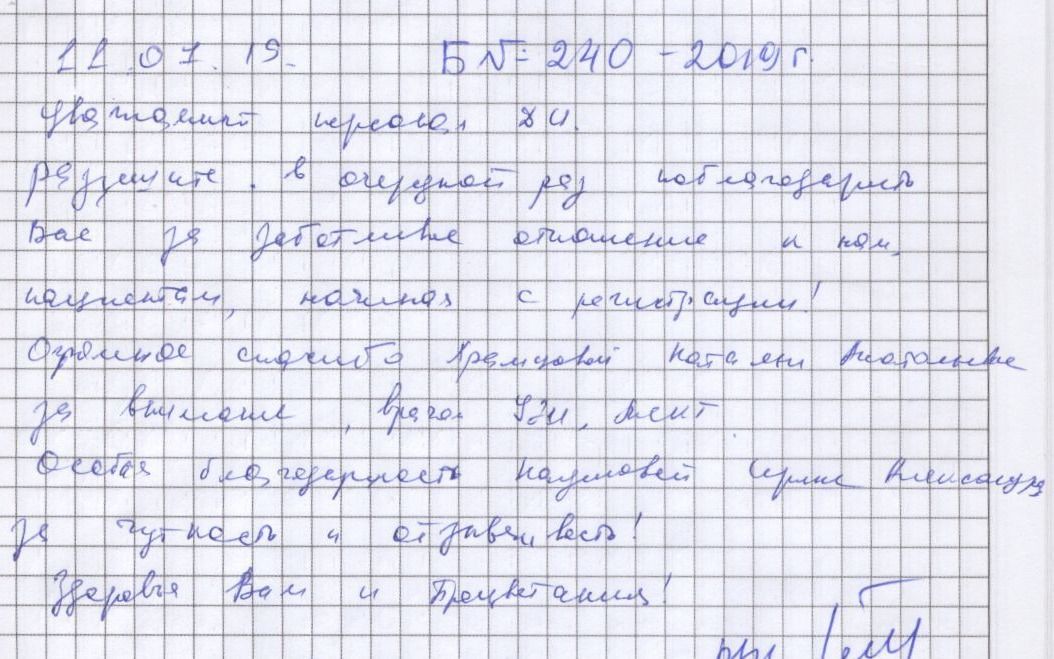 11.01.19. Б№ 240-2019г.
Уважаемый персонал ДЦ.
Разрешите в очередной раз поблагодарить
Вас за заботливое отношение к нам,
пациентам, начиная с регистрации!
Огромное спасибо Храмцовой Наталии Анатольевне
за внимание, врачам УЗИ, МСКТ.
Особая благодарность Наумовой Ирине
за чуткость и отзывчивость!
Здоровья Вам и Процветания!